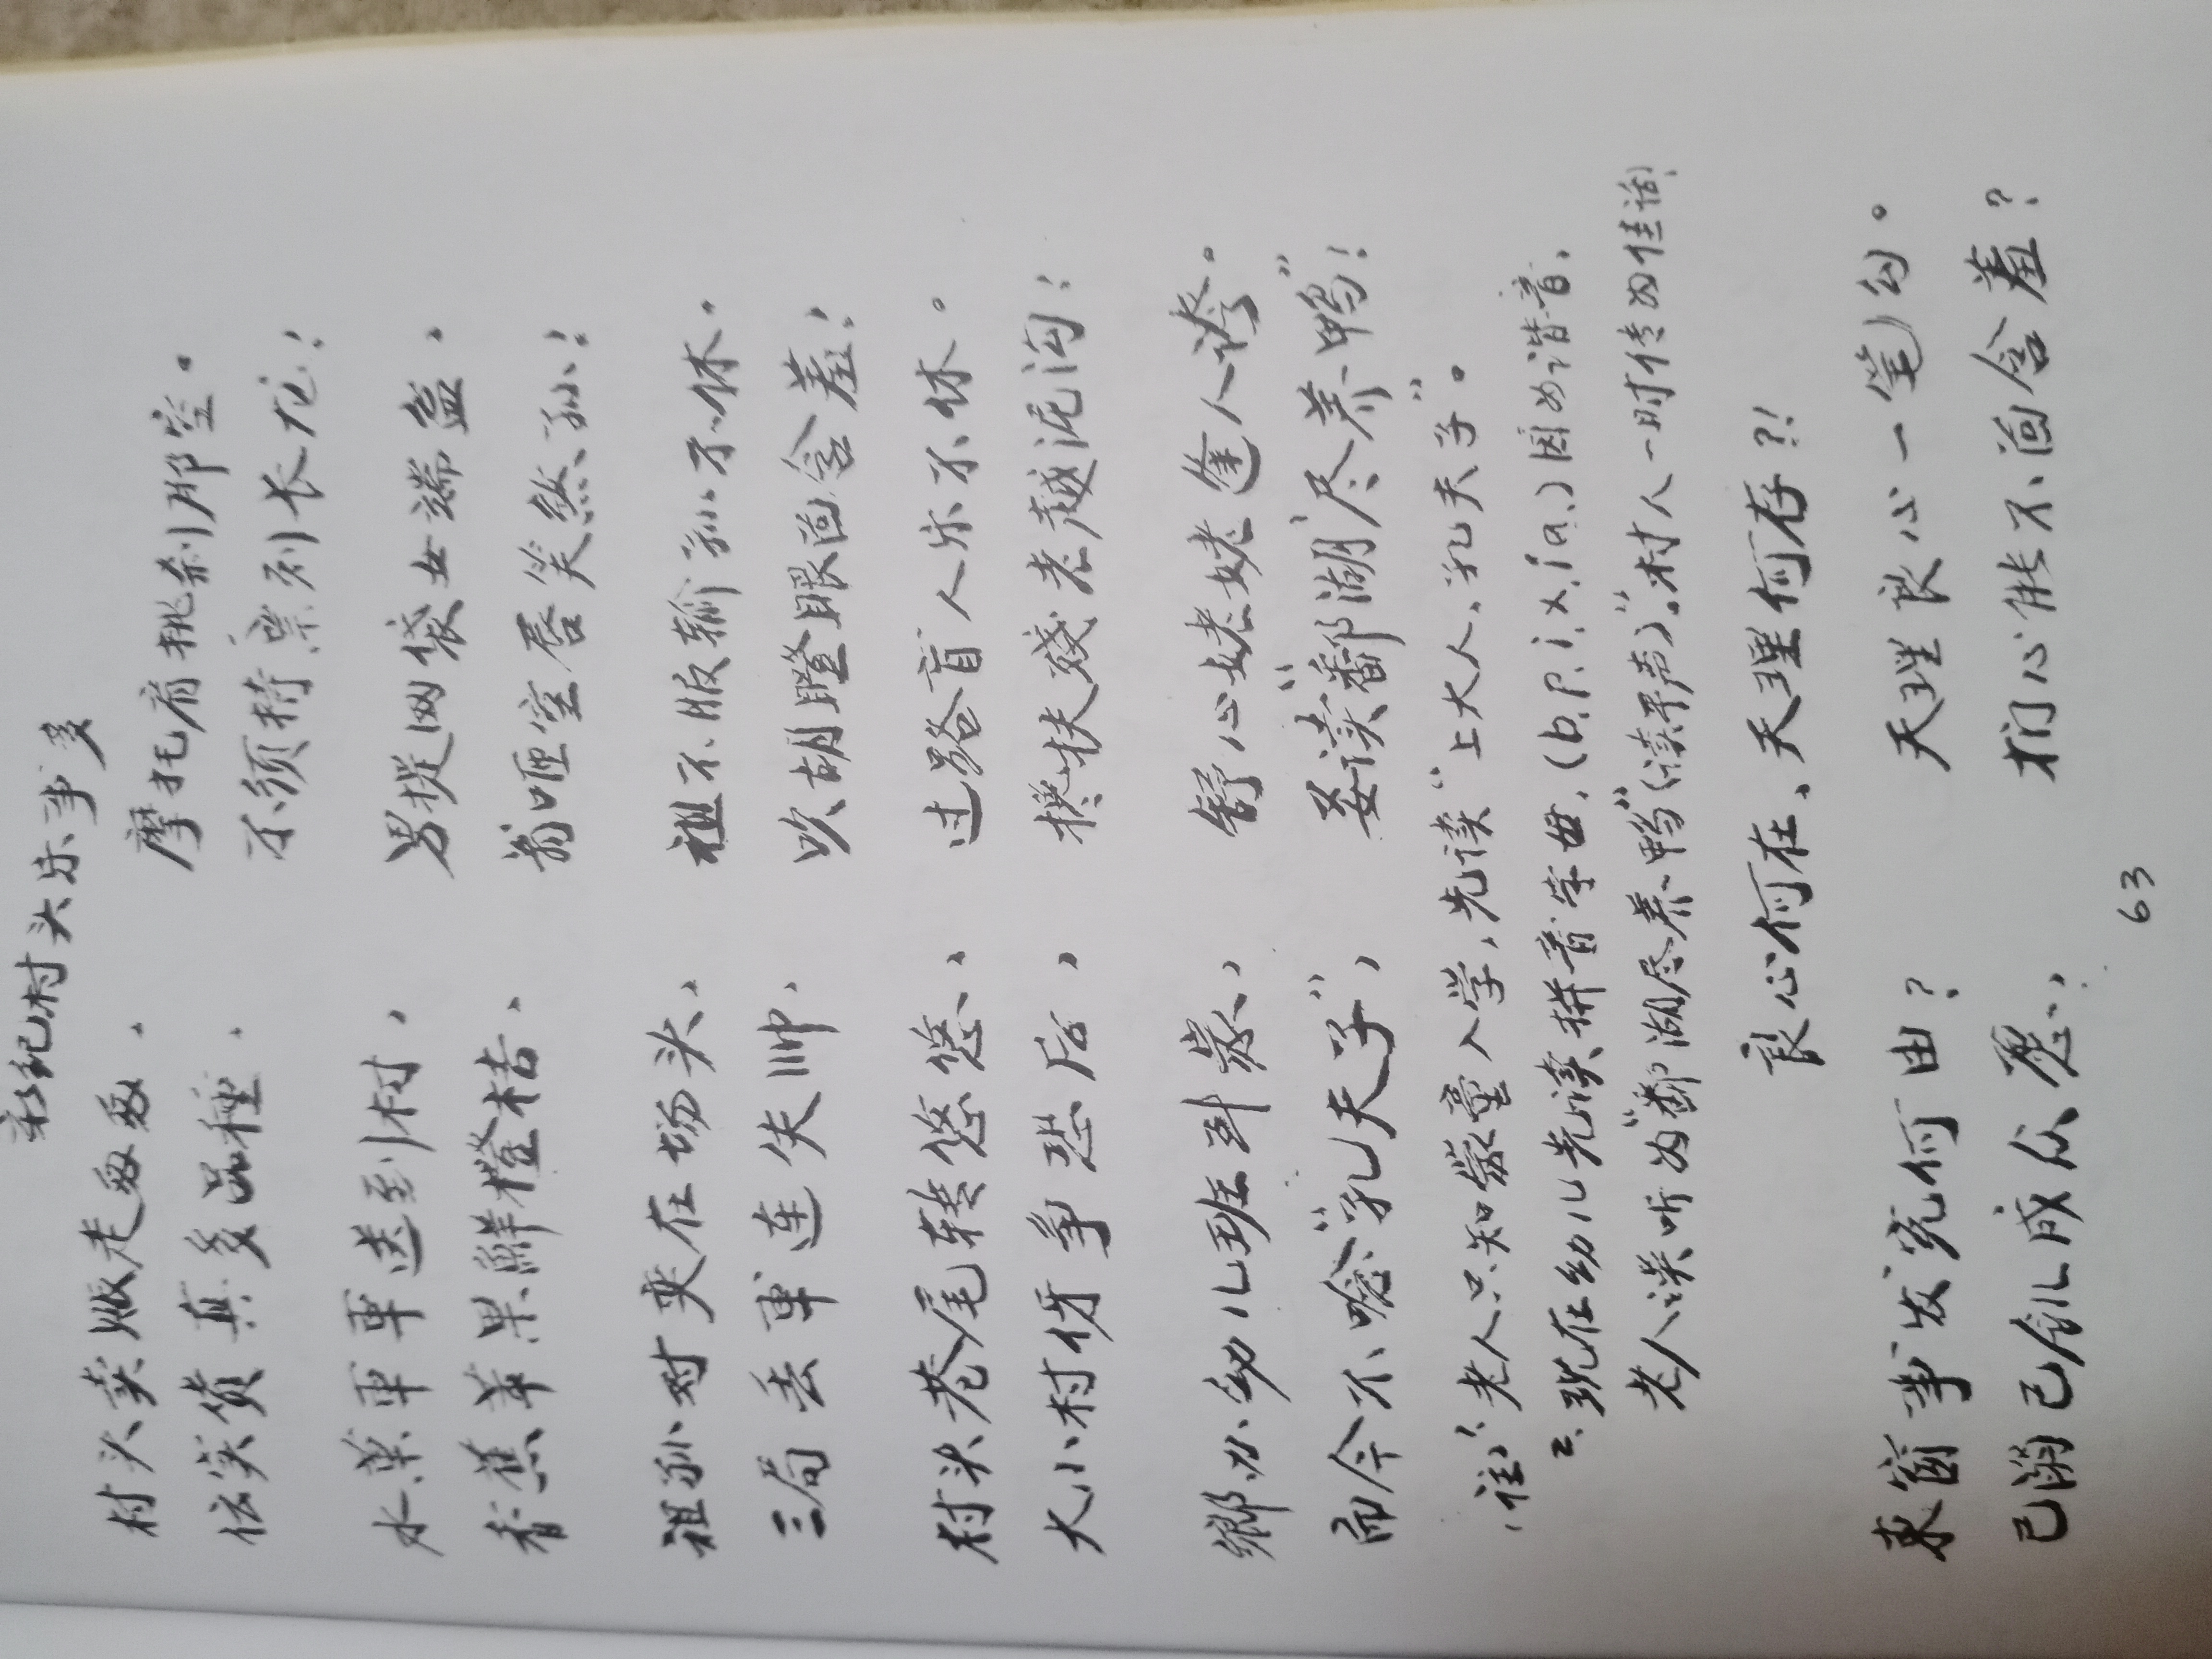 新纪村头乐事多
村头卖贩走匆匆, 摩托肩挑刹那空。
伝实货真多品種, 不须持票列长龙!
水菓車車送到村, 男提网袋女端盆,
香蕉苹果鮮橙桔, 翁咂空唇笑煞孙!
祖孙对奕在场头, 祖不服输孙不休。
三局丢車连失帅, 吹胡瞪眼面含羞!
村头巷尾转悠悠, 过路盲人乐不休。
大小村伢争恐后, 搀扶残老越泥沟!
鄉办幼儿班到家, 舒心姥姥逢人誇。
而今不唸“孔夫子”, 要读“鄱湖尽养鸭”!
(注) 1、老人只知蒙童入学,先读“上大人、孔夫子”。
2、现在幼儿先读拼音字母,(b.p.i.x.ia.)因为谐音,
老人误听为“鄱湖尽养鸭”(读平声)”。村人一时传为佳话,
良心何在、天理何存?!
東窗事发究何由? 天理良心一笔勾。
已溺已飢成众愿, 扪心能不面含羞?
63